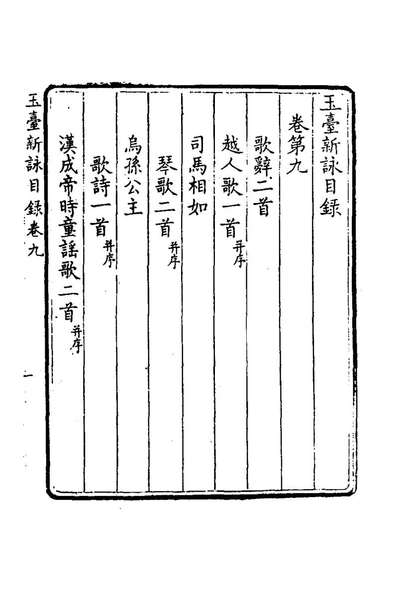 玉臺新詠目錄
卷第九
歌辭二首
越人歌一首并序
司馬相如
琴歌二首并序
烏孫公主
歌詩一首并序
漢成帝時童謡歌二首并序
玉臺新詠目錄卷九
一